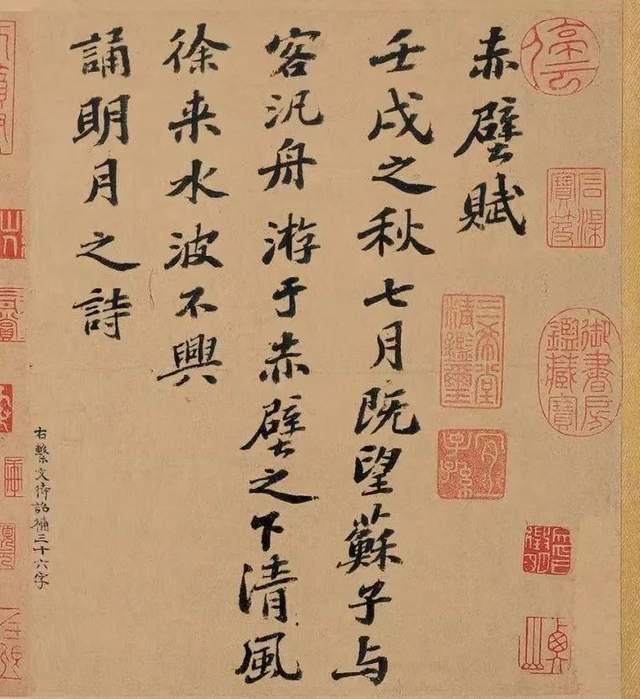 御書房
鑑藏寶
三希堂
精鑑璽
宜
子孫
赤壁賦
壬戌之秋七月既望蘇子与
客汎舟游于赤壁之下清風
徐来水波不興
誦明月之詩
右繫文待詔補三十六字